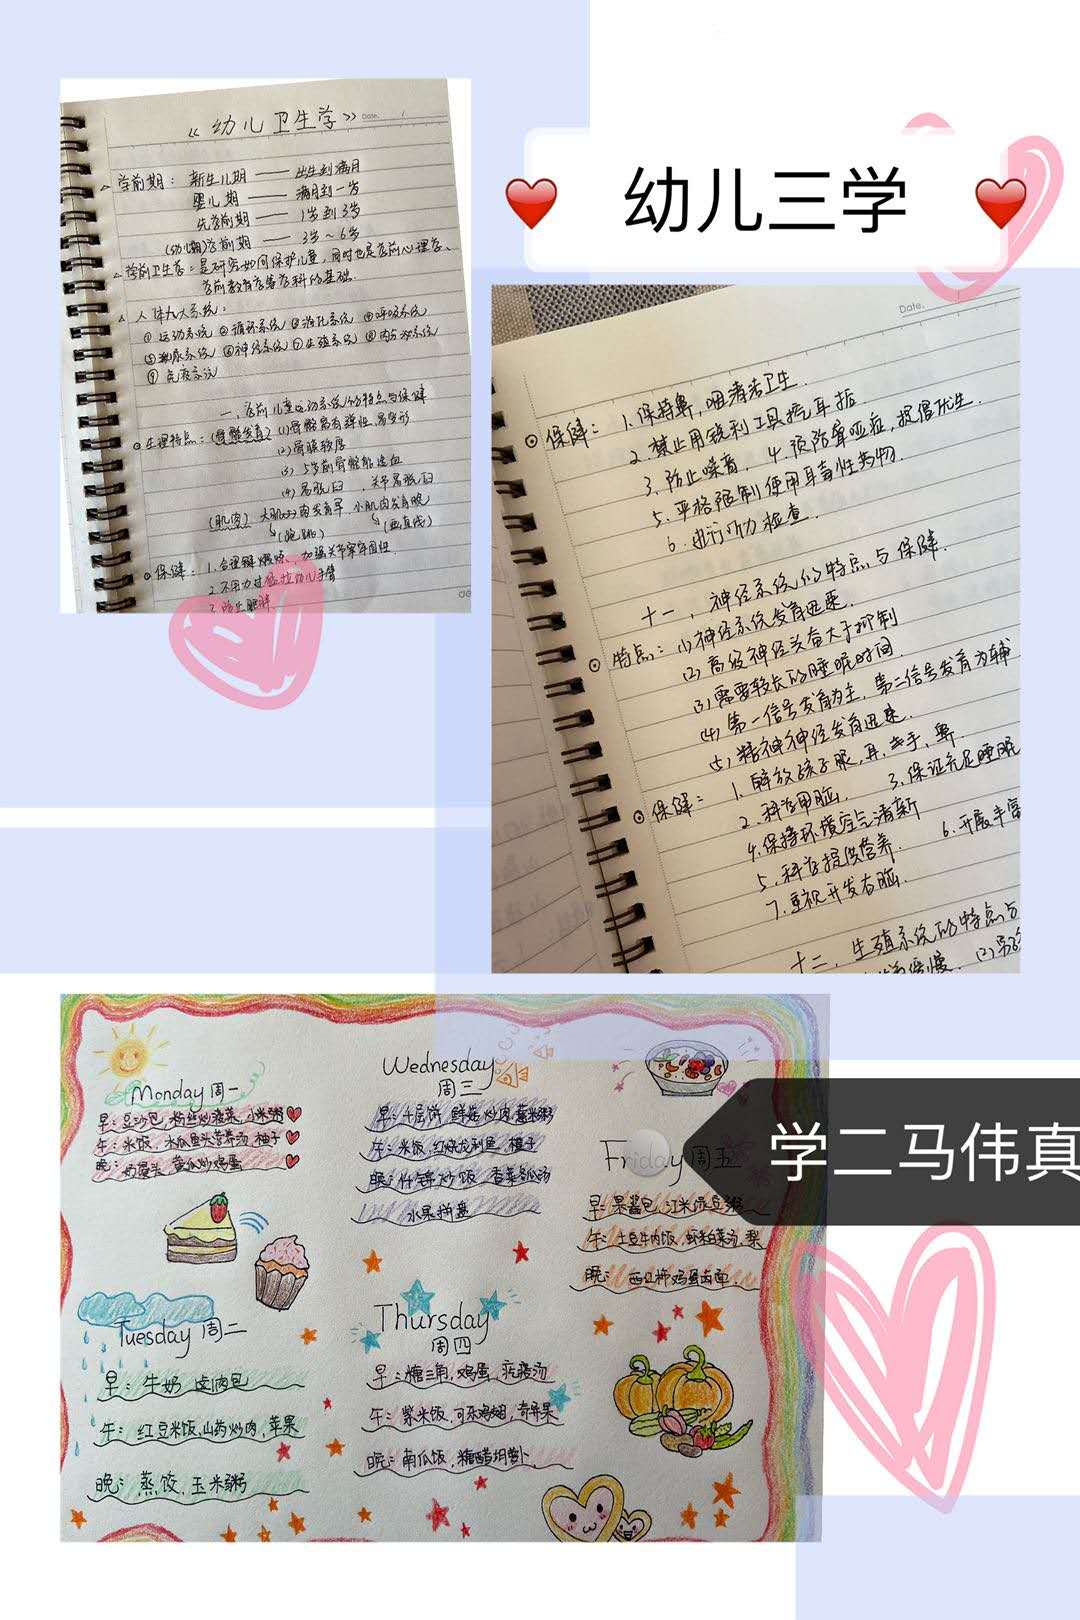 幼儿三学
《幼儿卫生学》
Date.
△ 学前期：新生儿期 —— 出生到满月
婴儿期 —— 满月到一岁
先学前期 —— 1岁到3岁
(幼儿期)学前期 —— 3岁～6岁
△ 学前卫生学：是研究如何保护儿童，同时也是学前心理学、
学前教育学等学科的基础.
△ 人体九大系统：
① 运动系统 ②循环系统 ③消化系统 ④呼吸系统
⑤泌尿系统 ⑥神经系统 ⑦生殖系统 ⑧内分泌系统
⑨ 免疫系统
一、学前儿童运动系统的特点与保健
⊙生理特点：(骨骼发育) (1)骨骼富有弹性,易变形
(2)骨膜较厚
(3) 5岁前骨骼能造血
(肌肉) 大肌肉发育早,小肌肉发育晚
⊙保健：1.合理锻炼,加强关节牢固性.
Date.
⊙保健：1、保持鼻,咽清洁卫生.
2、禁止用锐利工具挖耳垢
3、防止噪音. 4、预防聋哑症,提倡优生.
5、严格限制使用耳毒性药物.
6、进行听力检查.
十一、神经系统的特点与保健.
⊙特点：(1)神经系统发育迅速.
(2)高级神经兴奋大于抑制
(3)需要较长的睡眠时间.
(4)第一信号发育为主,第二信号发育为辅
(5)精神神经发育迅速.
⊙保健：1、解放孩子眼,耳,手,鼻.
2、科学用脑. 3、保证充足睡眠
4、保持环境空气清新
5、科学提供营养. 6、开展丰富
7、重视开发右脑.
十二、生殖系统的特点与
学二马伟真
Monday 周一
早：豆沙包,粉丝炒菠菜,小米粥
午：米饭,木瓜鱼头营养汤,柚子
晚：奶馒头,黄瓜炒鸡蛋
Tuesday 周二
早：牛奶 卤肉包
午：红豆米饭,山药炒肉,苹果
晚：蒸饺,玉米粥
Wednesday
周三
早：千层饼,鲜菇炒肉,薏米粥
午：米饭,红烧龙利鱼,橙子
晚：什锦炒饭 香菜冬瓜汤
水果拼盘
Thursday
周四
早：糖三角,鸡蛋,疙瘩汤
午：紫米饭,可乐鸡翅,奇异果
晚：南瓜饭,糖醋胡萝卜.
Friday 周五
早：果酱包,江米绿豆粥
午：土豆牛肉饭,虾米白菜汤,梨
晚：西红柿鸡蛋卤面.